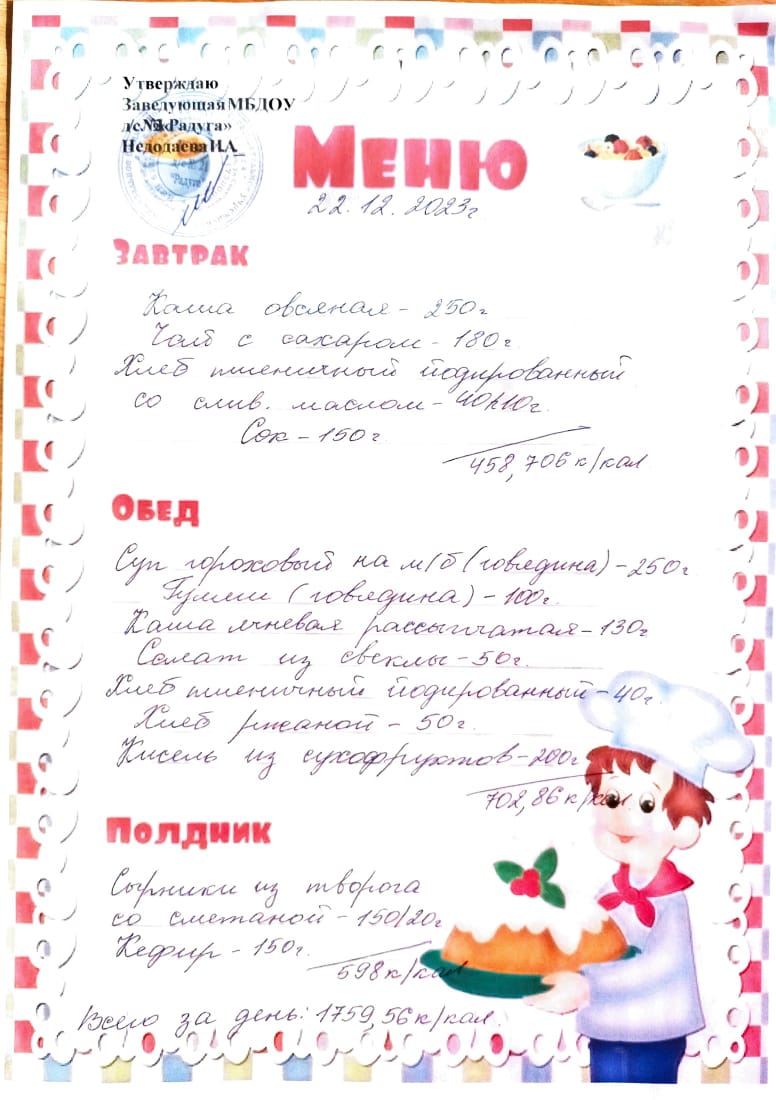 Утверждаю
Заведующая МБДОУ
д/с «Радуга»
Недодаева И.А.
Меню
22.12.2023г
Завтрак
Каша овсяная - 250г
Чай с сахаром - 180г.
Хлеб пшеничный йодированный
со слив. маслом - 40/10г.
Сок - 150г.
458,706 к/кал
Обед
Суп гороховый на м/б (говядина) - 250г
Гуляш (говядина) - 100г.
Каша ячневая рассыпчатая - 130г
Салат из свеклы - 50г.
Хлеб пшеничный йодированный - 40г.
Хлеб ржаной - 50г.
Кисель из сухофруктов - 200г
702,86 к/кал.
Полдник
Сырники из творога
со сметаной - 150/20г
Кефир - 150г.
598 к/кал
Всего за день: 1759,56 к/кал.